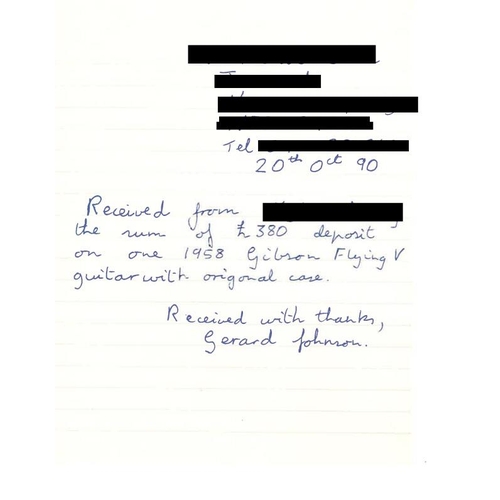 Tel
20th Oct 90
Received from
the sum of £380 deposit
on one 1958 Gibson Flying V
guitar with origonal case.
Received with thanks,
Gerard Johnson.